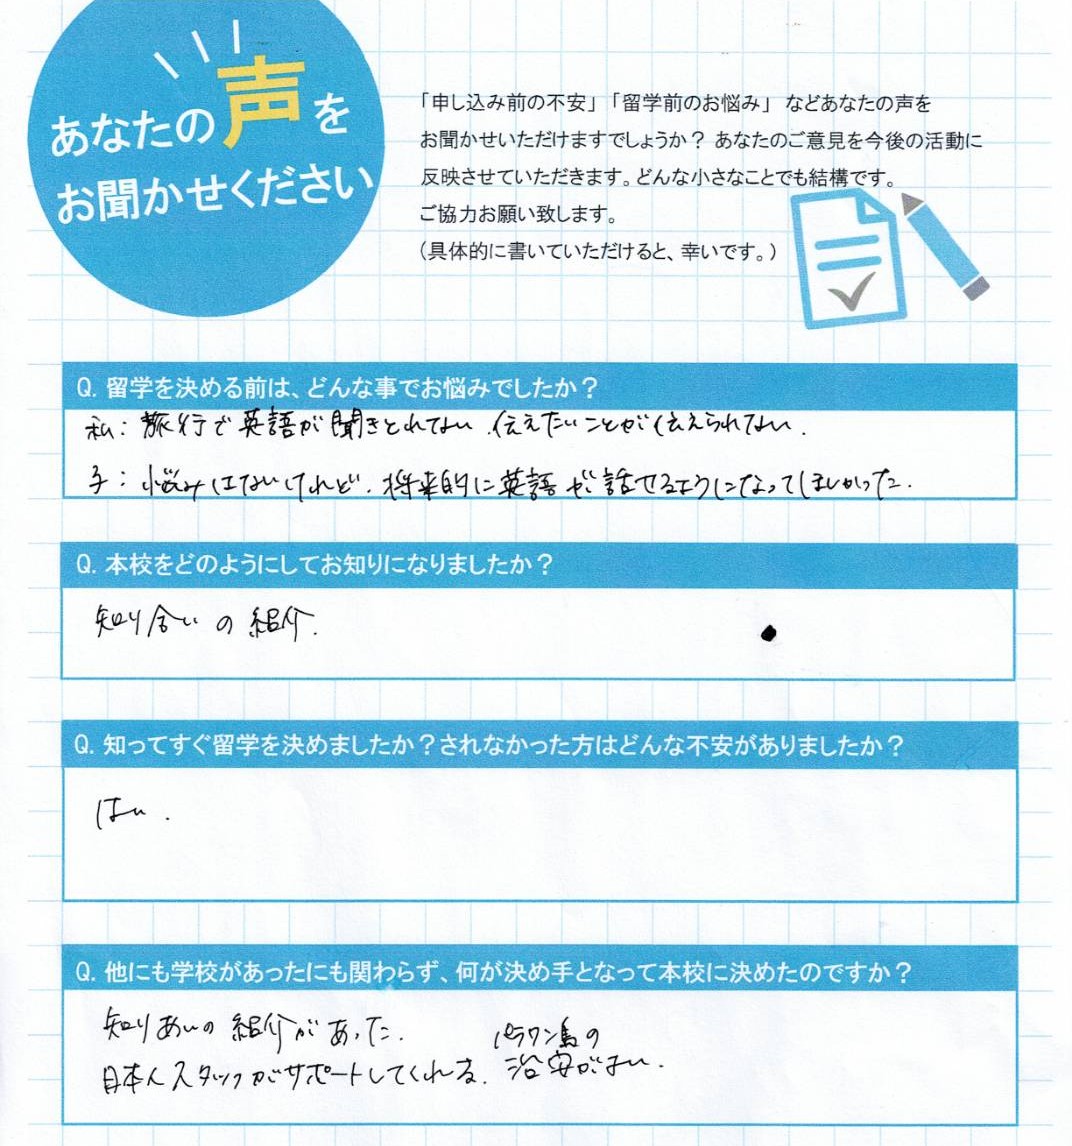 あなたの声を
お聞かせください
「申し込み前の不安」「留学前のお悩み」 などあなたの声を
お聞かせいただけますでしょうか? あなたのご意見を今後の活動に
反映させていただきます。どんな小さなことでも結構です。
ご協力お願い致します。
(具体的に書いていただけると、幸いです。)
Q. 留学を決める前は、どんな事でお悩みでしたか?
私: 旅行で英語が聞きとれない.伝えたいことが伝えられない.
子: 悩みはないけれど.将来的に英語が話せるようになってほしかった.
Q. 本校をどのようにしてお知りになりましたか?
知り合いの紹介.
Q. 知ってすぐ留学を決めましたか?されなかった方はどんな不安がありましたか?
はい.
Q. 他にも学校があったにも関わらず、何が決め手となって本校に決めたのですか?
知りあいの紹介があった.
日本人スタッフがサポートしてくれる.
パラワン島の
治安がよい.